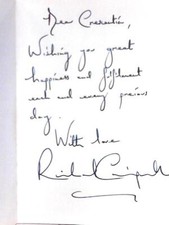 Dear
Wishing you great
happiness and fulfilment
each and every precious
day.
With love
Richard